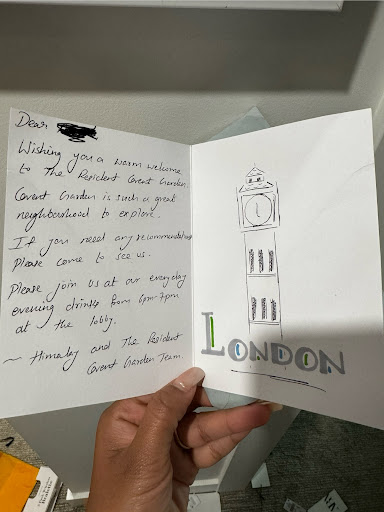 Dear
Wishing you a warm welcome
to The Resident Covent Garden.
Covent Garden is such a great
neighbourhood to explore.
If you need any recommendations
Please come to see us.
Please join us at our everyday
evening drinks from 6pm-7pm
at the lobby.
~ Himalay and The Resident
Covent Garden Team.
LONDON